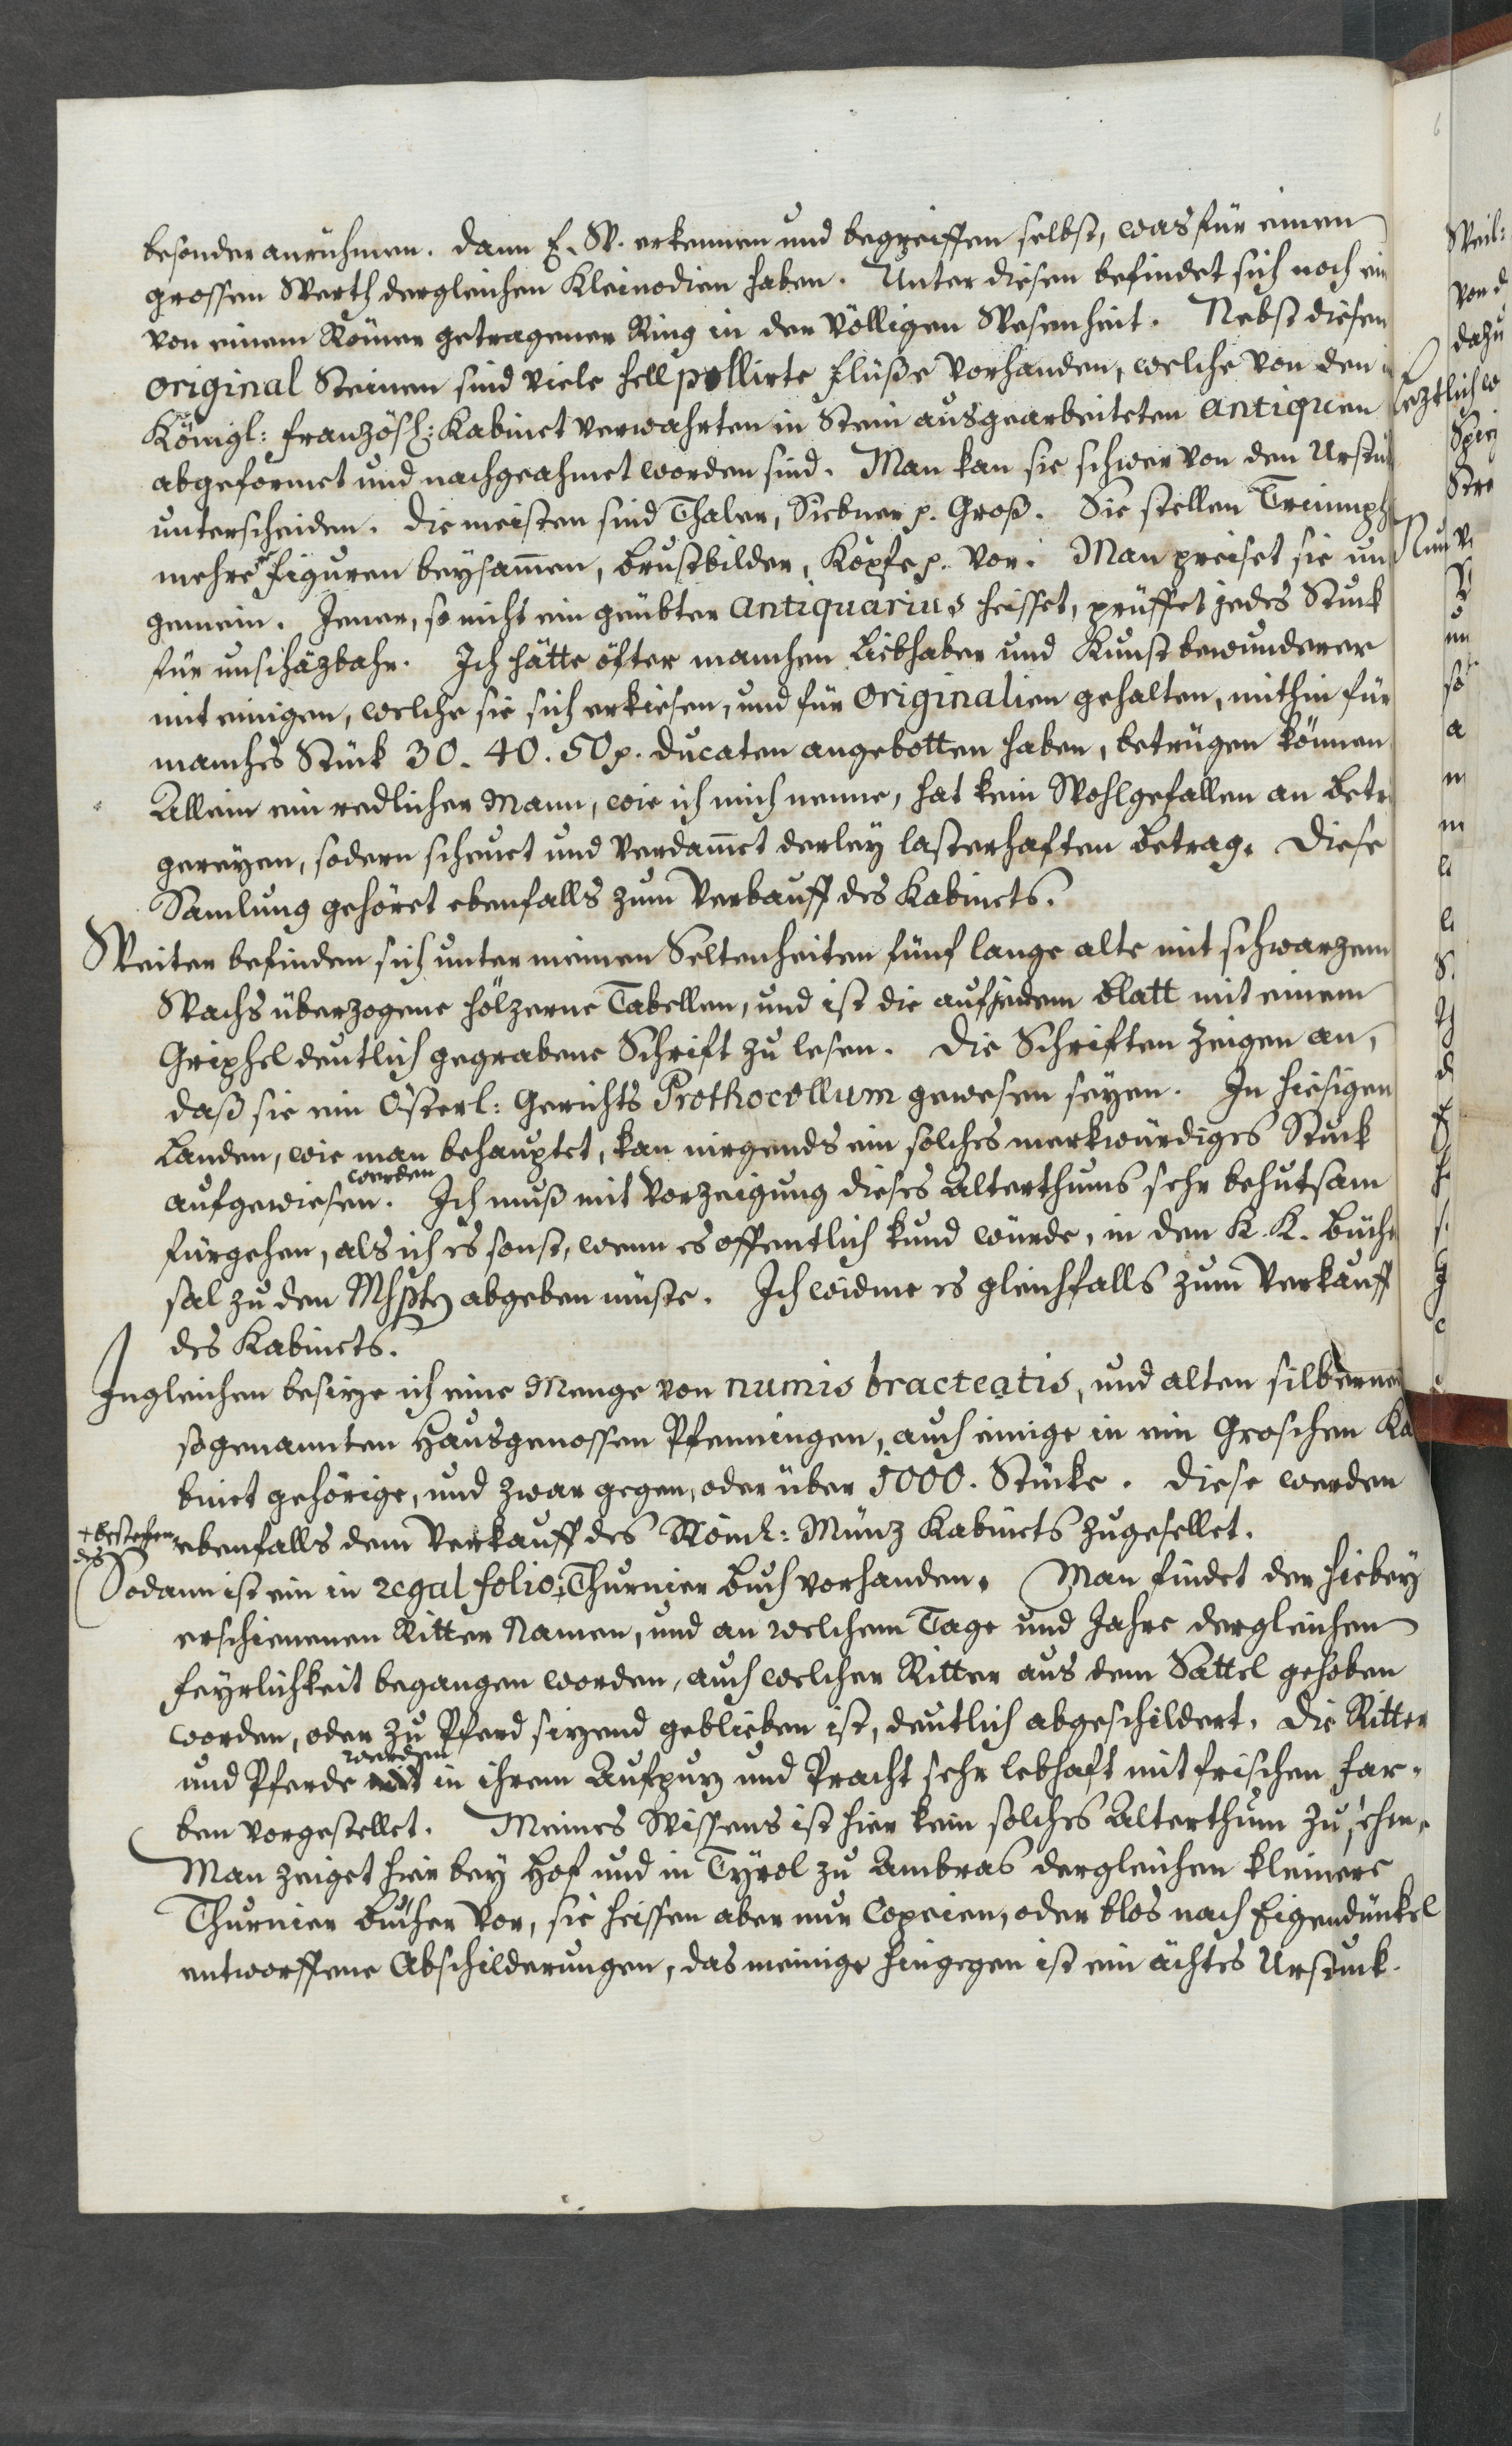 besonder anrühmen. Dann E. W. erkennen und begreiffen selbst, was für einen
grossen Werth dergleichen Kleinodien haben. Unter diesen befindet sich noch ein
von einem Römer getragener Ring in der völligen Wesenheit. Nebst diesen
original Steinen sind viele hell pollirte Flüße vorhanden, welche von den
Königl: französl: Kabinet verwahrten in Stein ausgearbeiteten Antiquen
abgeformet und nachgeahmet worden sind. Man kan sie schwer von den Urstük
unterscheiden. Die meisten sind Thaler, Siebner p. Groß. Sie stellen Triumph
mehre Figuren beysam̄en, Brustbilder, Köpfe p. vor. Man preiset sie un
gemein. Jener, so nicht ein geübter Antiquarius heisset, prüffet jedes Stuck
für unschäzbahr. Ich hätte öfter manchen Liebhaber und Kunstbewunderer
mit einigen, welche sie sich erkiesen, und für Originalien gehalten, mithin für
manches Stück 30. 40. 50 p. Ducaten angebotten haben, betrügen können
Allein ein redlicher Mann, wie ich mich nenne, hat kein Wohlgefallen an Betr
gereyen, sodern scheuet und verdam̄et derley lasterhaften Betrag. Diese
Samlung gehöret ebenfalls zum Verkauff des Kabinets.
Weiter befinden sich unter meinen Seltenheiten fünf lange alte mit schwarzem
Wachs überzogene hölzerne Tabellen, und ist die auf jedem Blatt mit einem
Griphel deutlich gegrabene Schrift zu lesen. Die Schriften zeigen an,
daß sie ein Österl: Gerichts Prothocollum gewesen seyen. In hiesigen
Landen, wie man behauptet, kan nirgends ein solches merkwürdiges Stuck
werden
aufgewiesen. Ich muß mit Vorzeigung dieses Alterthums sehr behutsam
fürgehen, als ich es sonst, wenn es öffentlich kund würde, in den K. K. Büch
sal zu den Mspten abgeben müste. Ich widme es gleichfalls zum Verkauff
des Kabinets.
Ingleichen besize ich eine Menge von numis bracteatis, und alten silbernen
sogenannten Hausgenossen Pfenningen, auch einige in ein Groschen Ka
binet gehörige, und zwar gegen, oder über 1000. Stücke. Diese werden
ebenfalls dem Verkauff des Röml: Münz Kabinets zugesellet.
+bestehen
des
Sodann ist ein in regal folio + Thurnier Buch vorhanden. Man findet der hiebey
erschienenen Ritter Namen, und an welchem Tage und Jahre dergleichen
Feyrlichkeit begangen worden, auch welcher Ritter aus dem Sattel gehoben
worden, oder zu Pferd sizend geblieben ist, deutlich abgeschildert. Die Ritter
werden
und Pferde in ihrem Aufpuz und Pracht sehr lebhaft mit frischen Far-
ben vorgestellet. Meines Wissens ist hier kein solches Alterthum zu sehen.
Man zeiget hier bey Hof und in Tyrol zu Ambras dergleichen kleinere
Thurnier Bücher vor, sie heissen aber nur Copeien, oder blos nach Eigendünkel
entworffene Abschilderungen, das meinige hingegen ist ein ächtes Urstuck.